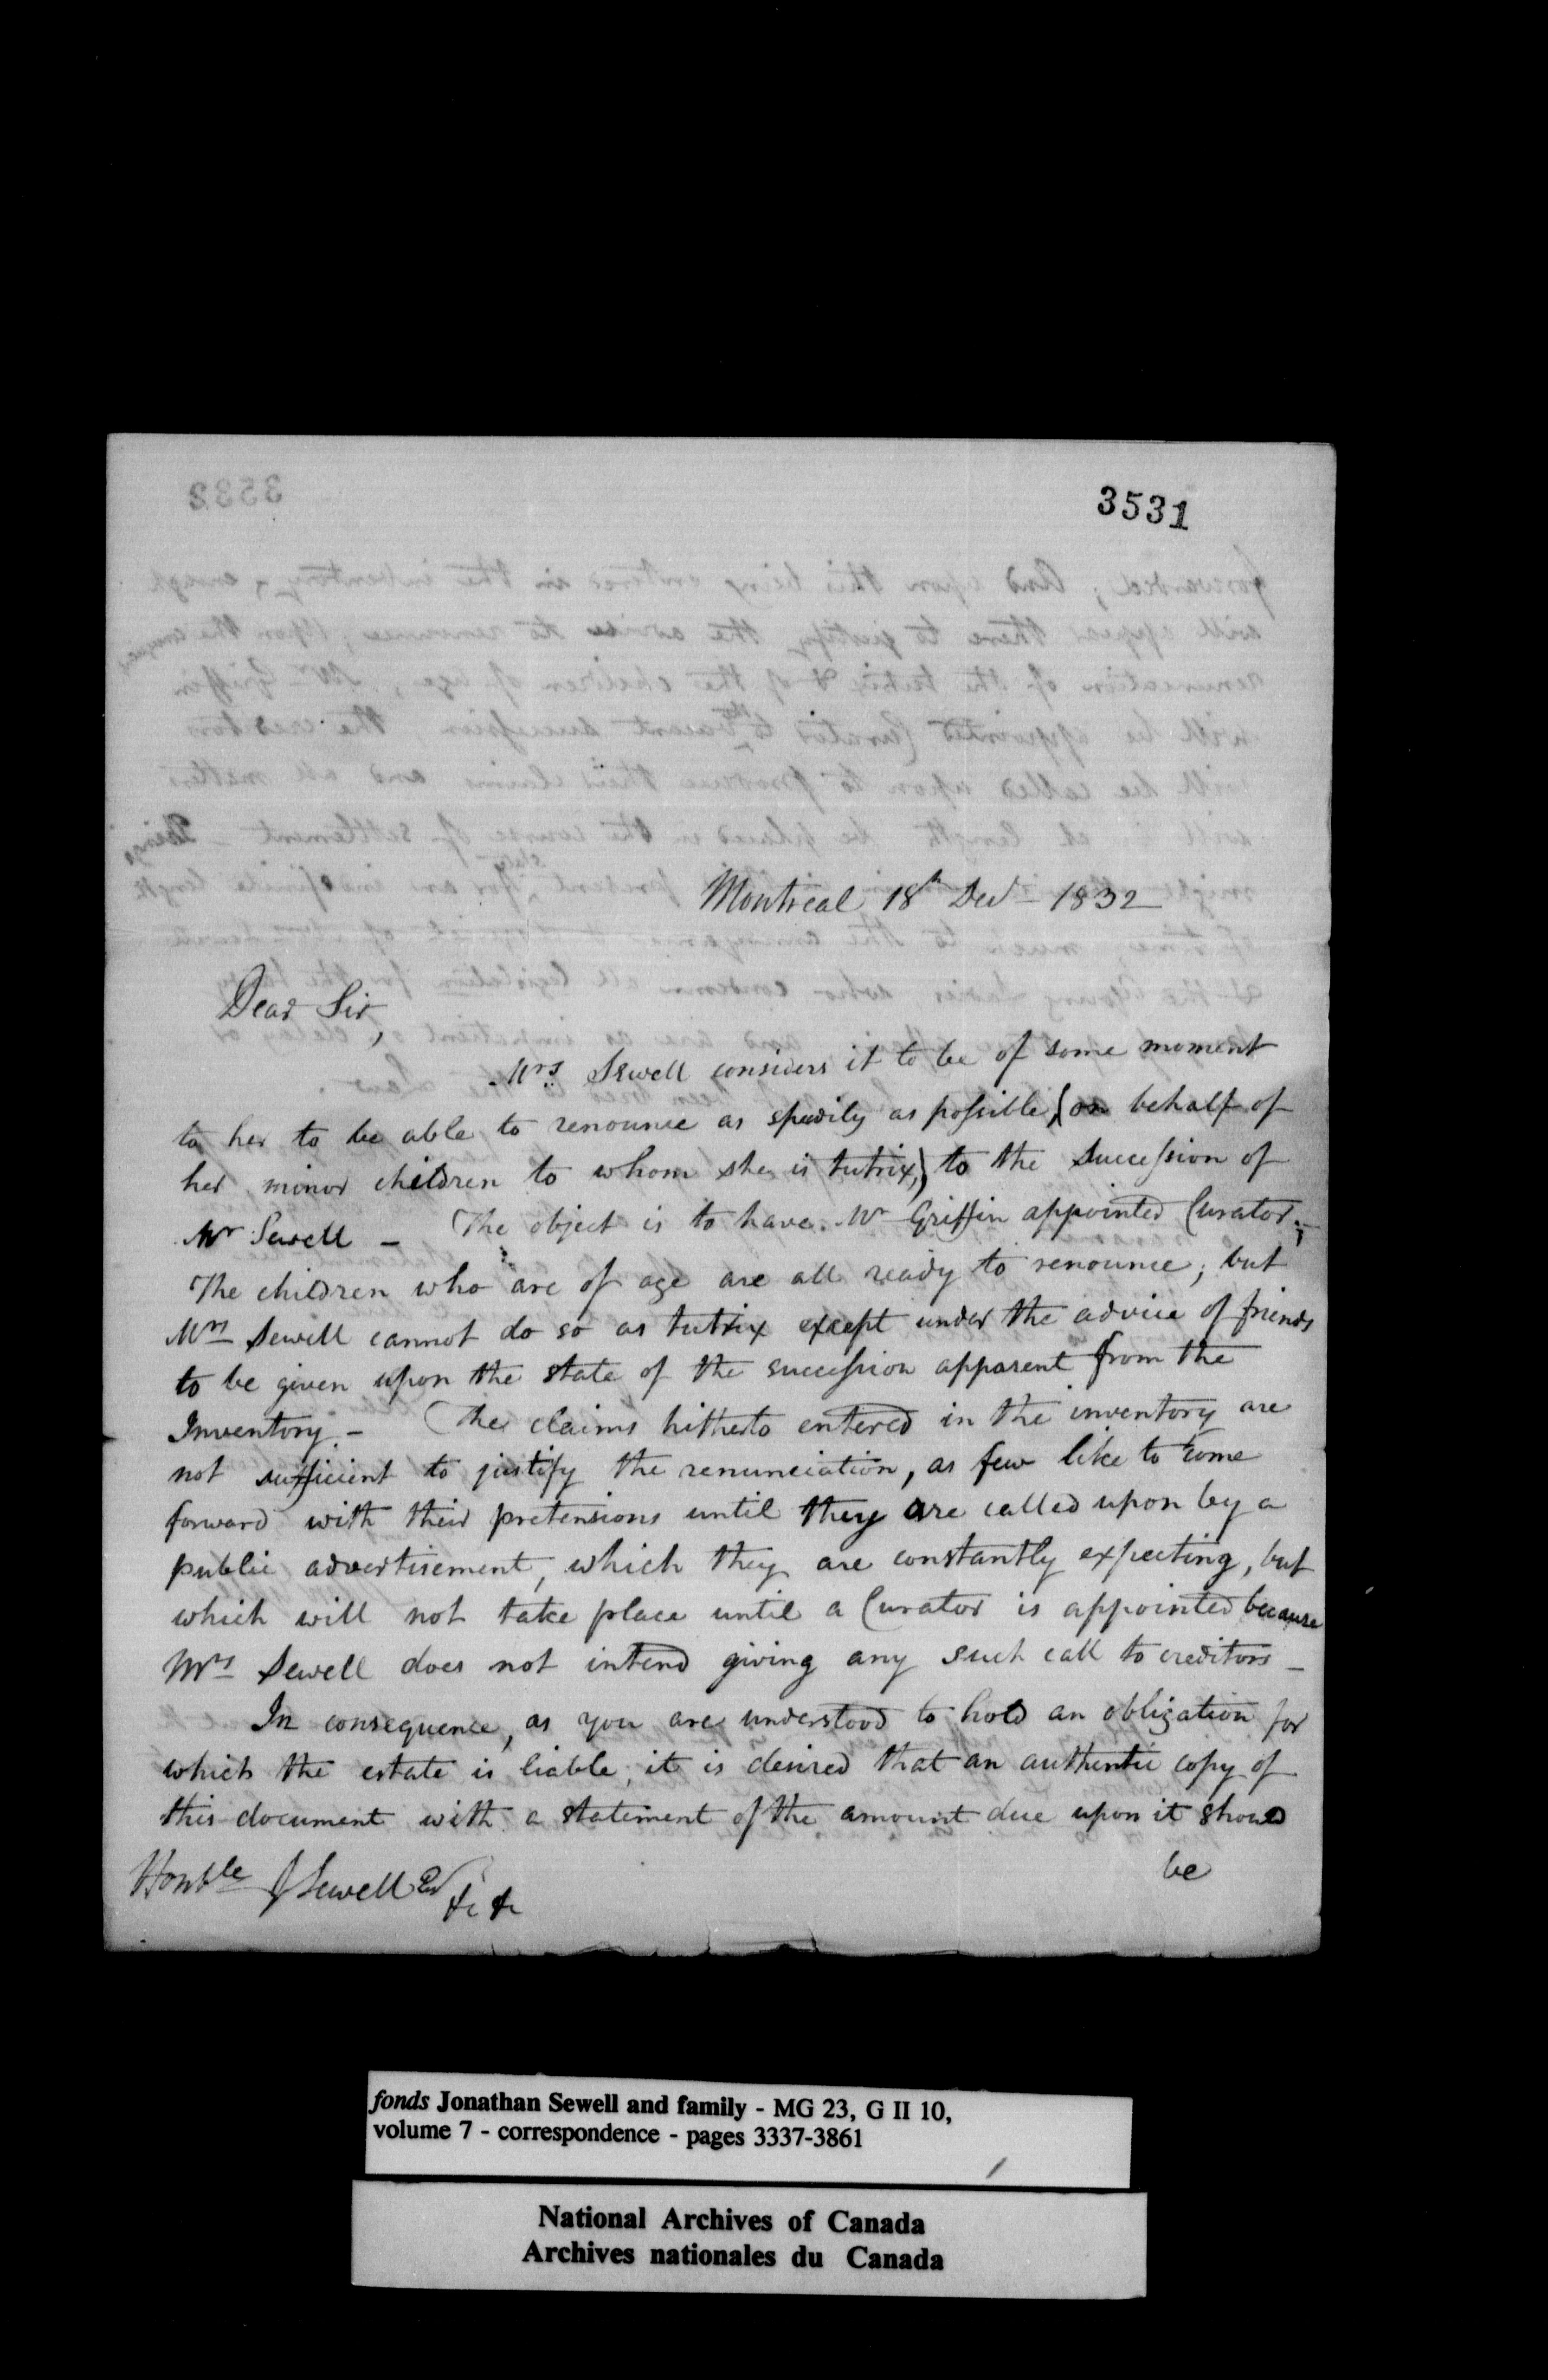 3531
Montreal 18th Decr 1832
Dear Sir,
Mrs Sewell considers it to be of some moment
to her to be able to renounce as speedily as possible, (on behalf of
her minor children to whom she is tutrix,) to the Succession of
Mr Sewell – The object is to have Mr Griffin appointed Curator;
The children who are of age are all ready to renounce; but
Mrs Sewell cannot do so as tutrix except under the advice of friends
to be given upon the state of the succession apparent from the
Inventory. – The claims hitherto entered in the inventory are
not sufficient to justify the renunciation, as few like to come
forward with their pretensions until they are called upon by a
public advertisement, which they are constantly expecting, but
which will not take place until a Curator is appointed because
Mrs Sewell does not intend giving any such call to creditors –
In consequence, as you are understood to hold an obligation for
which the estate is liable, it is desired that an authentic copy of
this document with a statement of the amount due upon it should
be
Honble J Sewell Esqr
&c &c
fonds Jonathan Sewell and family - MG 23, G II 10,
volume 7 - correspondence - pages 3337-3861
National Archives of Canada
Archives nationales du Canada